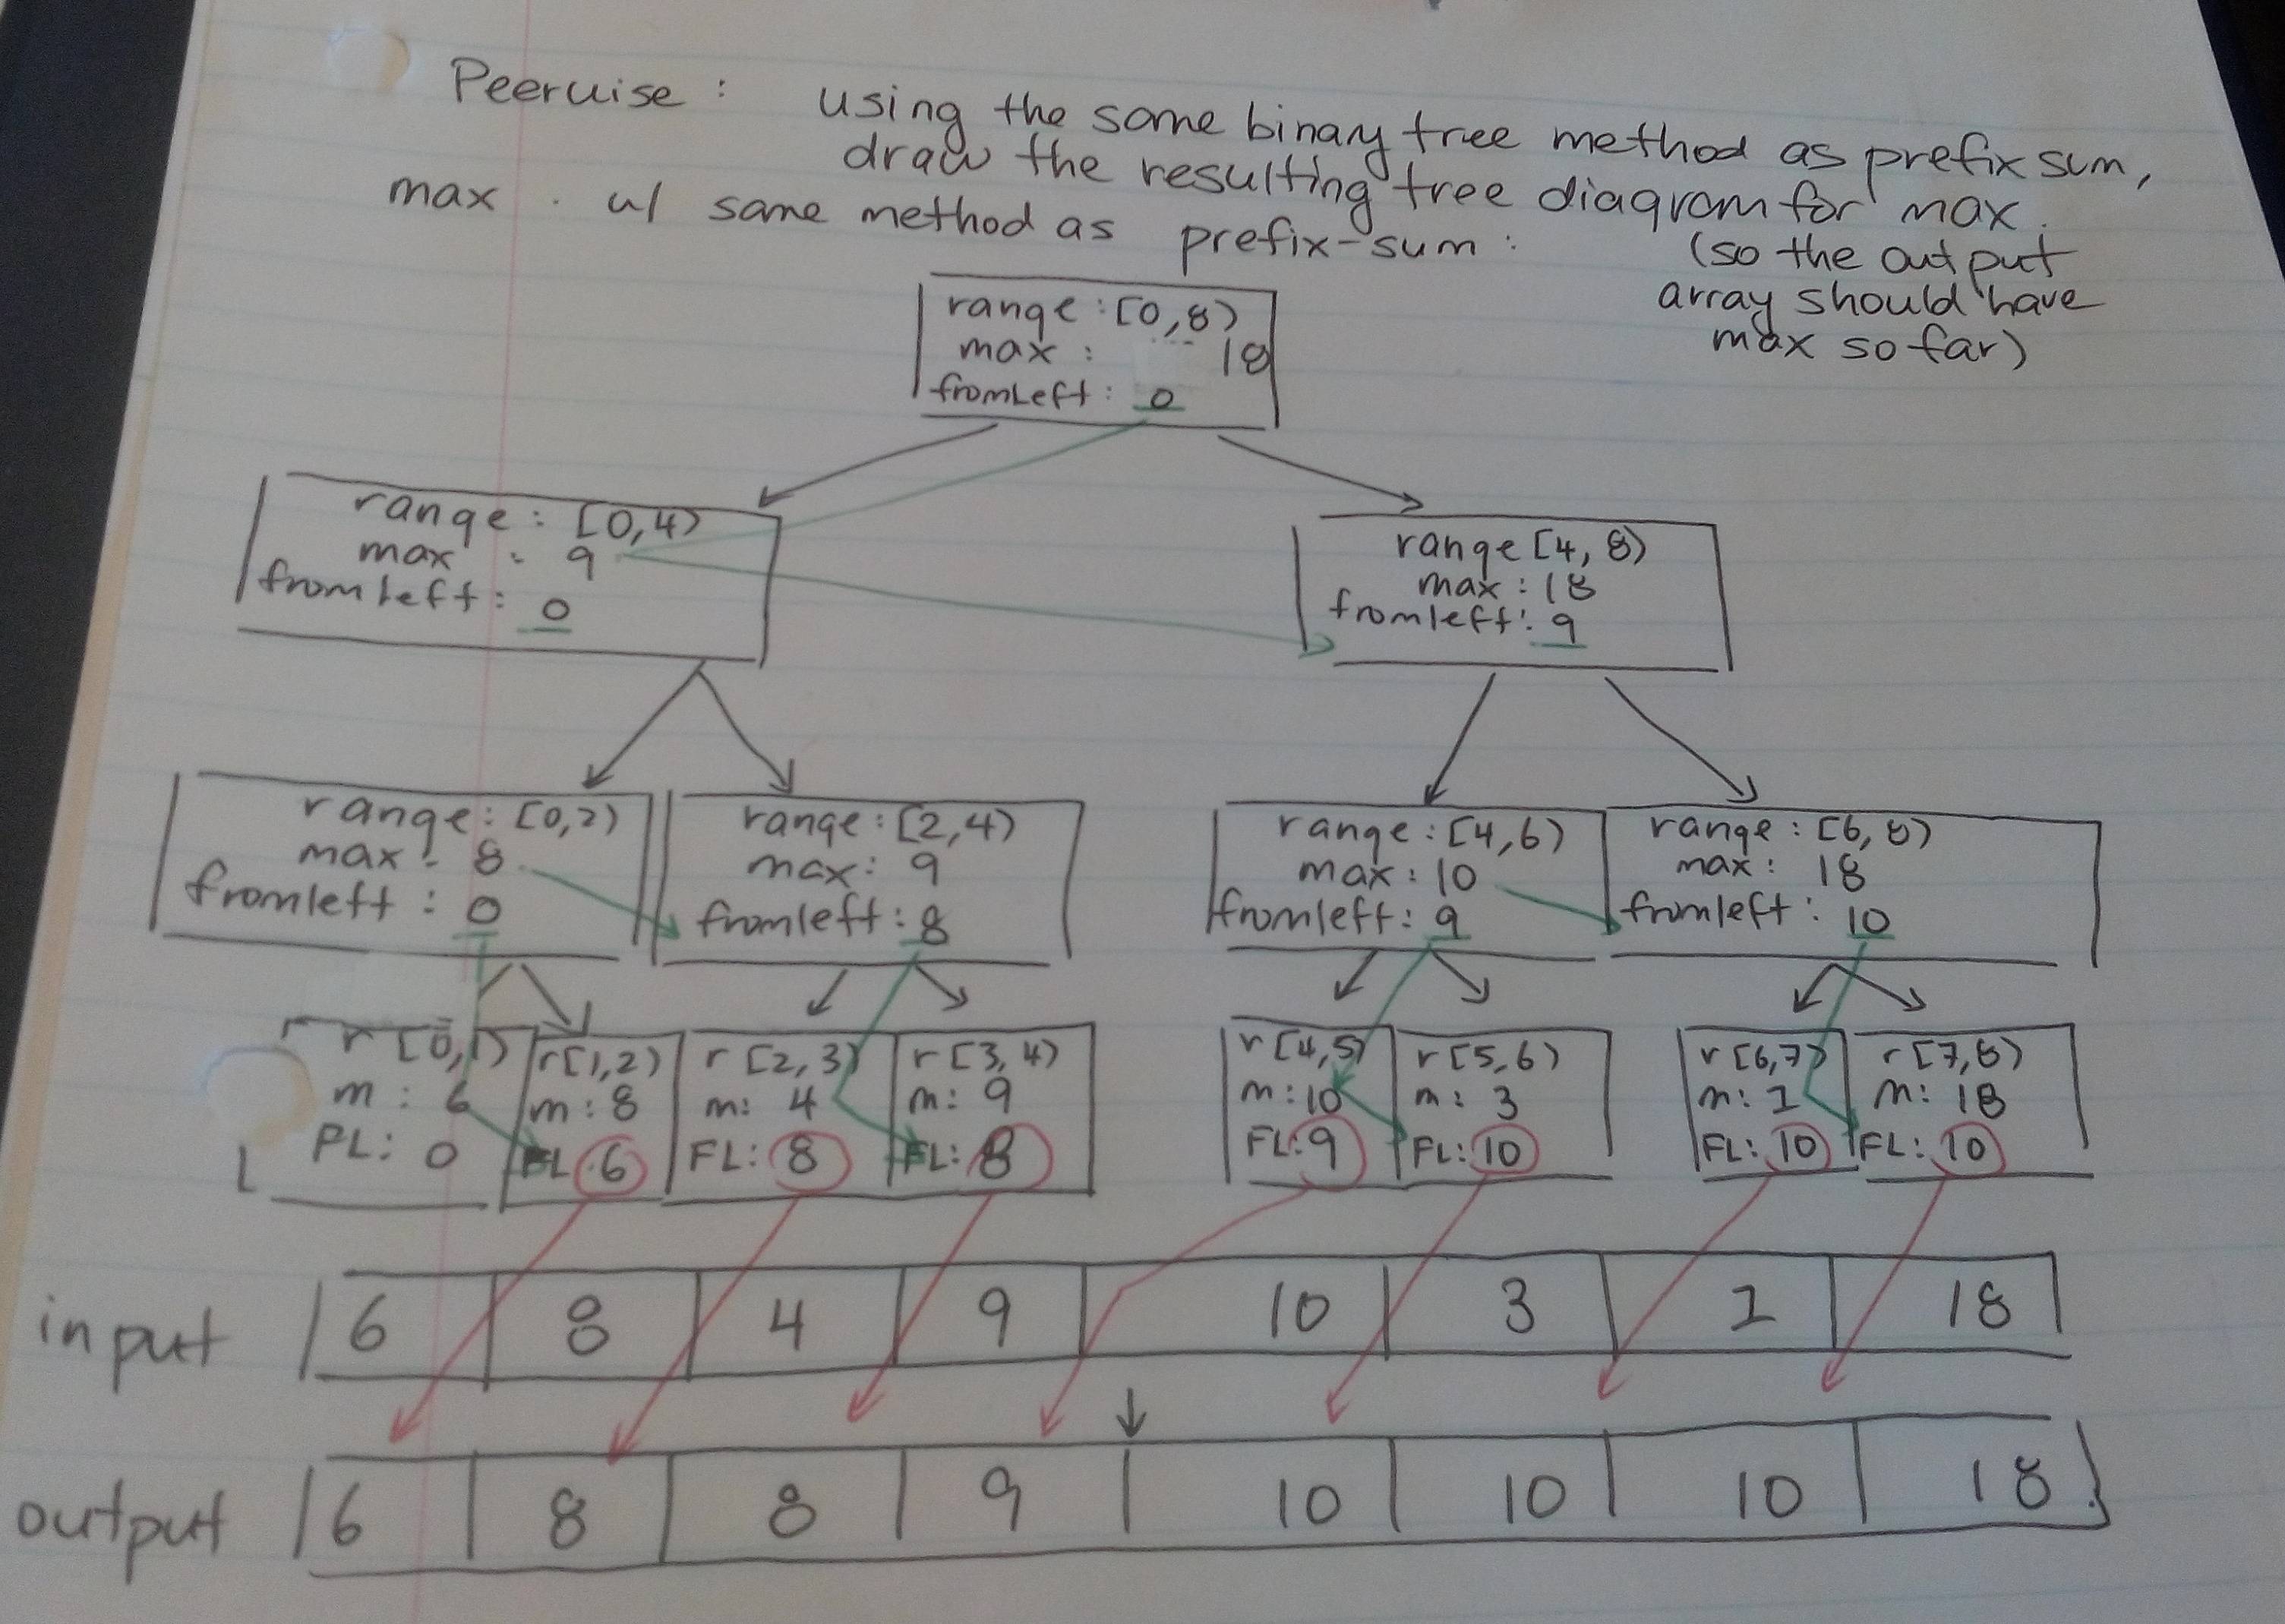 Peerwise : using the same binary tree method as prefix sum,
draw the resulting tree diagram for max.
(so the output
array should have
max so far)
max . w/ same method as prefix-sum :
range : [0,8)
max : 18
fromLeft : 0
range : [0,4)
max : 9
fromleft : 0
range [4, 8)
max : 18
fromleft : 9
range : [0,2)
max : 8
fromleft : 0
range : [2,4)
max : 9
fromleft : 8
range : [4,6)
max : 10
fromleft : 9
range : [6, 8)
max : 18
fromleft : 10
r [0,1)
m : 6
FL : 0
r[1,2)
m : 8
FL : 6
r [2, 3)
m: 4
FL: 8
r [3, 4)
m: 9
FL: 8
r [4,5)
m: 10
FL: 9
r [5,6)
m: 3
FL: 10
r [6,7)
m: 1
FL: 10
r [7,8)
m: 18
FL: 10
input 6 8 4 9 10 3 1 18
output 6 8 8 9 10 10 10 18